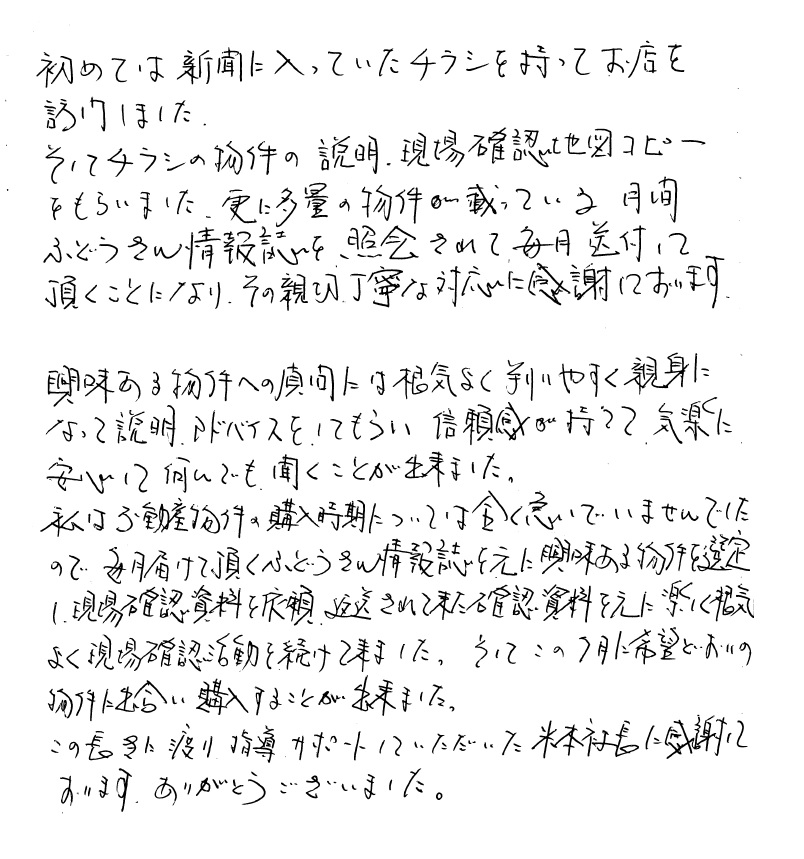 初めては新聞に入っていたチラシを持ってお店を
訪門しました.
そしてチラシの物件の説明、現場確認地図コピー
をもらいました、更に多量の物件が載っている月間
ふどうさん情報誌を照会されて、毎月送付して
頂くことになり、その親切丁寧な対応に感謝しております.
興味ある物件への質問には根気よく判りやすく親身に
なって説明、アドバイスをしてもらい信頼感が持てて、気楽に
安心して何んでも聞くことが出来ました。
私は不動産物件の購入時期については全く急いでいませんでした
ので、毎月届けて頂くふどうさん情報誌を元に興味ある物件を選定
し、現場確認資料を依頼、返送されて来た確認資料を元に楽しく根気
よく現場確認活動を続けて来ました。そしてこの7月に希望どおりの
物件に出会い購入することが出来ました。
この長きに渡り指導サポートしていただいた米本社長に感謝して
おります、ありがとうございました。